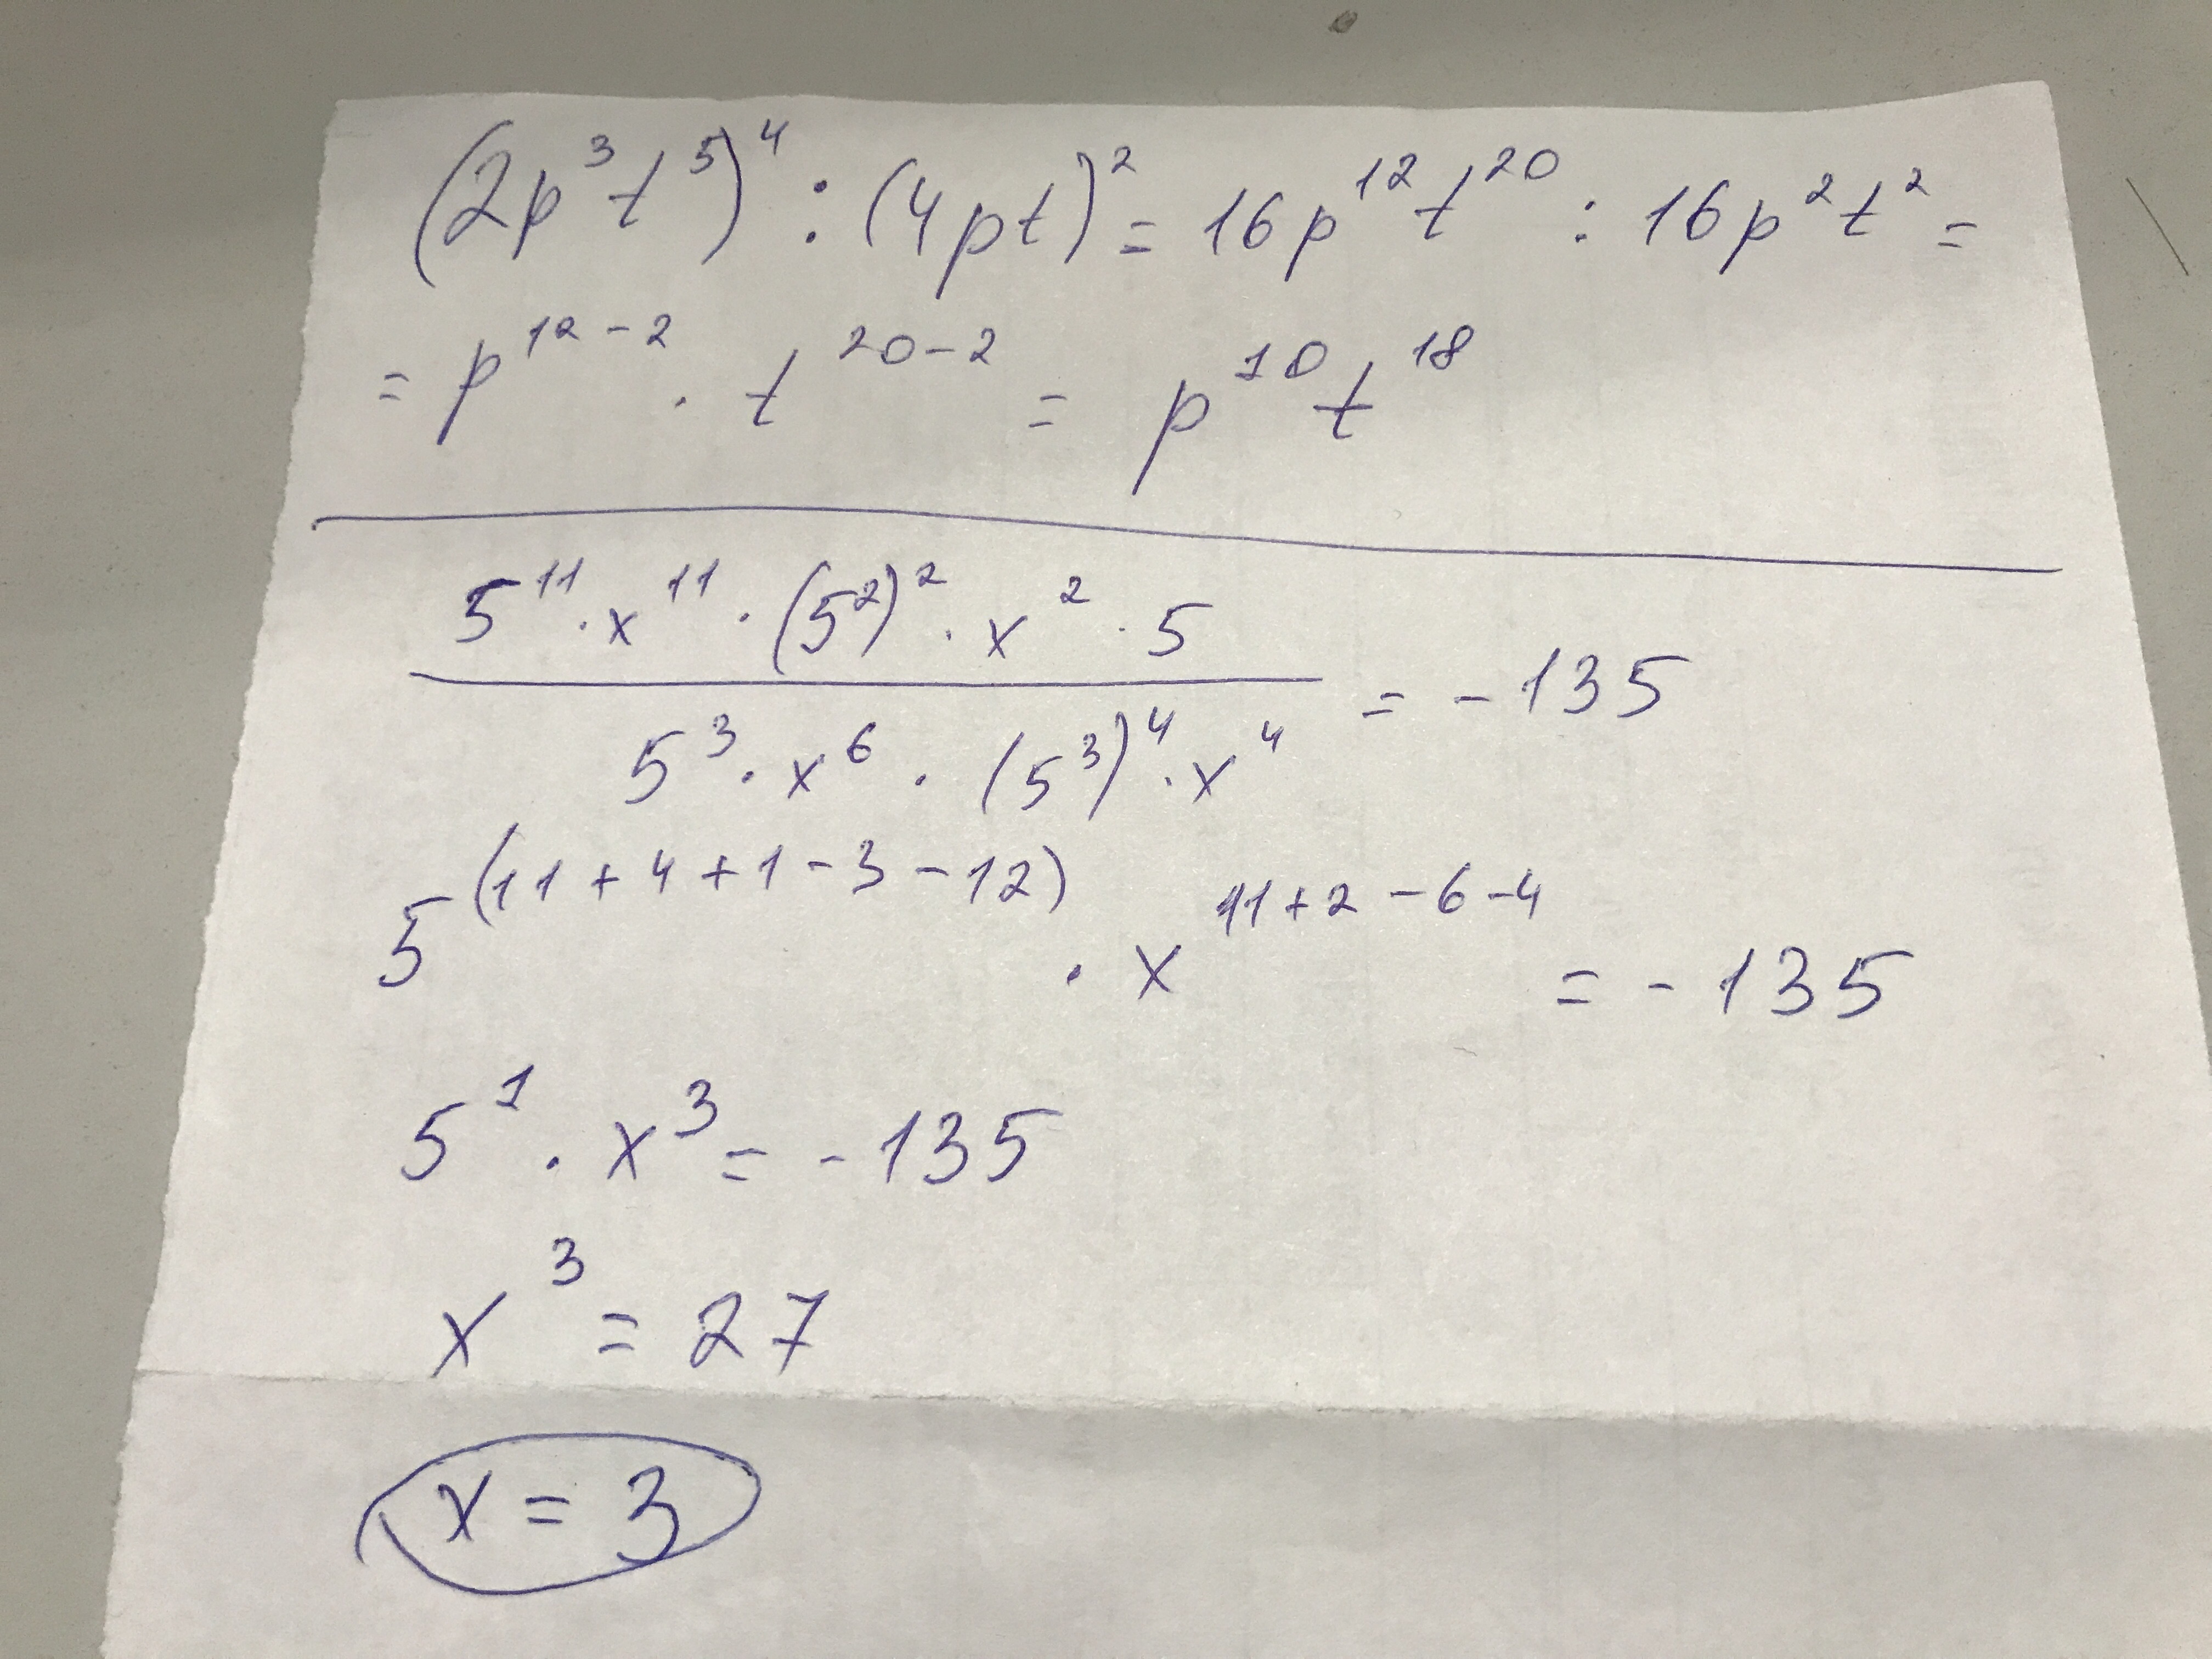 (2p³t⁵)⁴ : (4pt)² = 16p¹²t²⁰ : 16p²t² =
= p¹²⁻² · t²⁰⁻² = p¹⁰t¹⁸
5¹¹ · x¹¹ · (5²)² · x² · 5
= -135
5³ · x⁶ · (5³)⁴ · x⁴
5⁽¹¹⁺⁴⁺¹⁻³⁻¹²⁾ · x¹¹⁺²⁻⁶⁻⁴ = -135
5¹ · x³ = -135
x³ = 27
x = 3